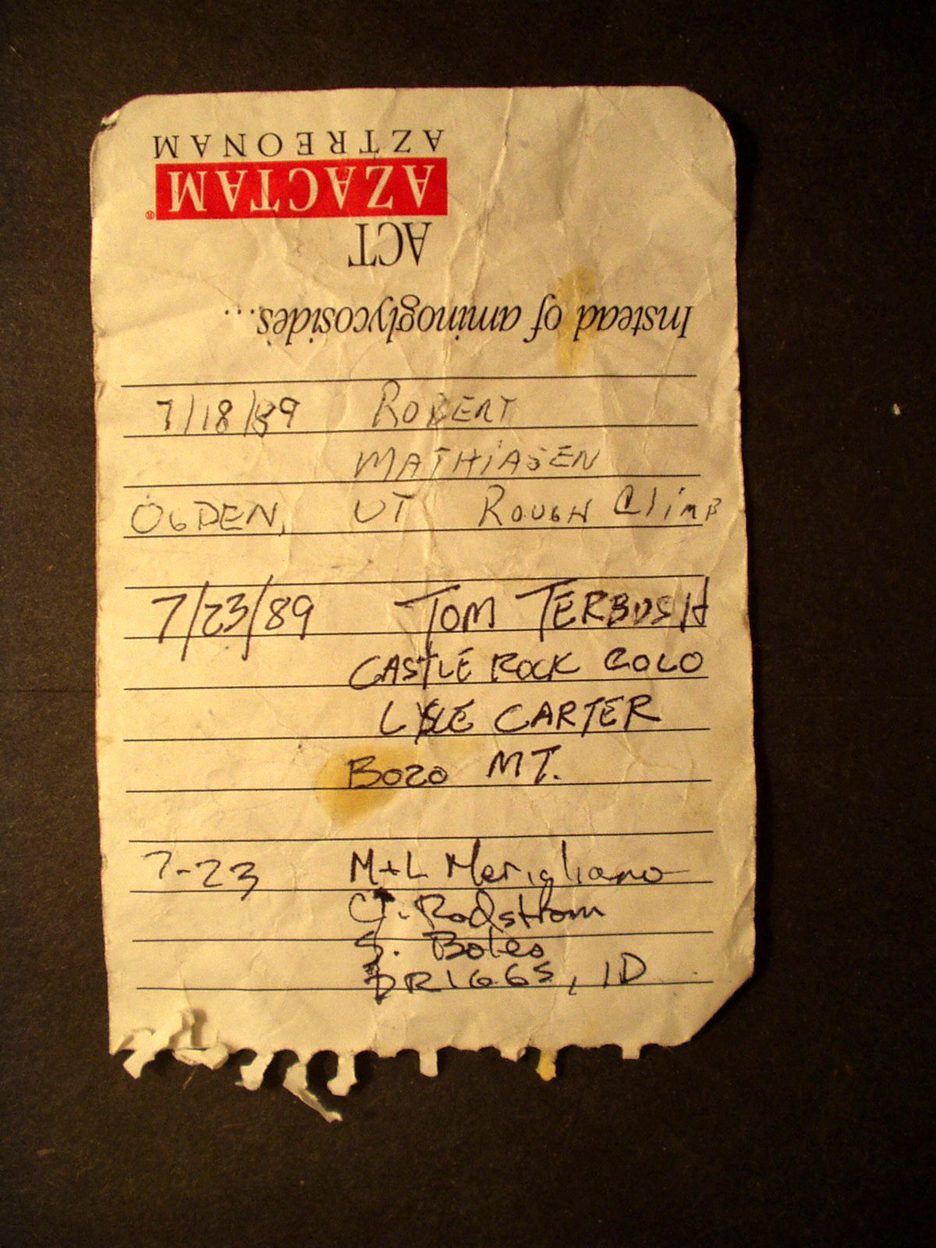 AZTREONAM
AZACTAM®
ACT
Instead of aminoglycosides...
7/18/89 ROBERT
MATHIASEN
OGDEN, UT ROUGH ClimB
7/23/89 TOM TERBUSH
CASTLE ROCK COLO
LYLE CARTER
BOZO MT.
7-23 M+L Merigliano
Rodstrom
S. Boles
DRIGGS, ID